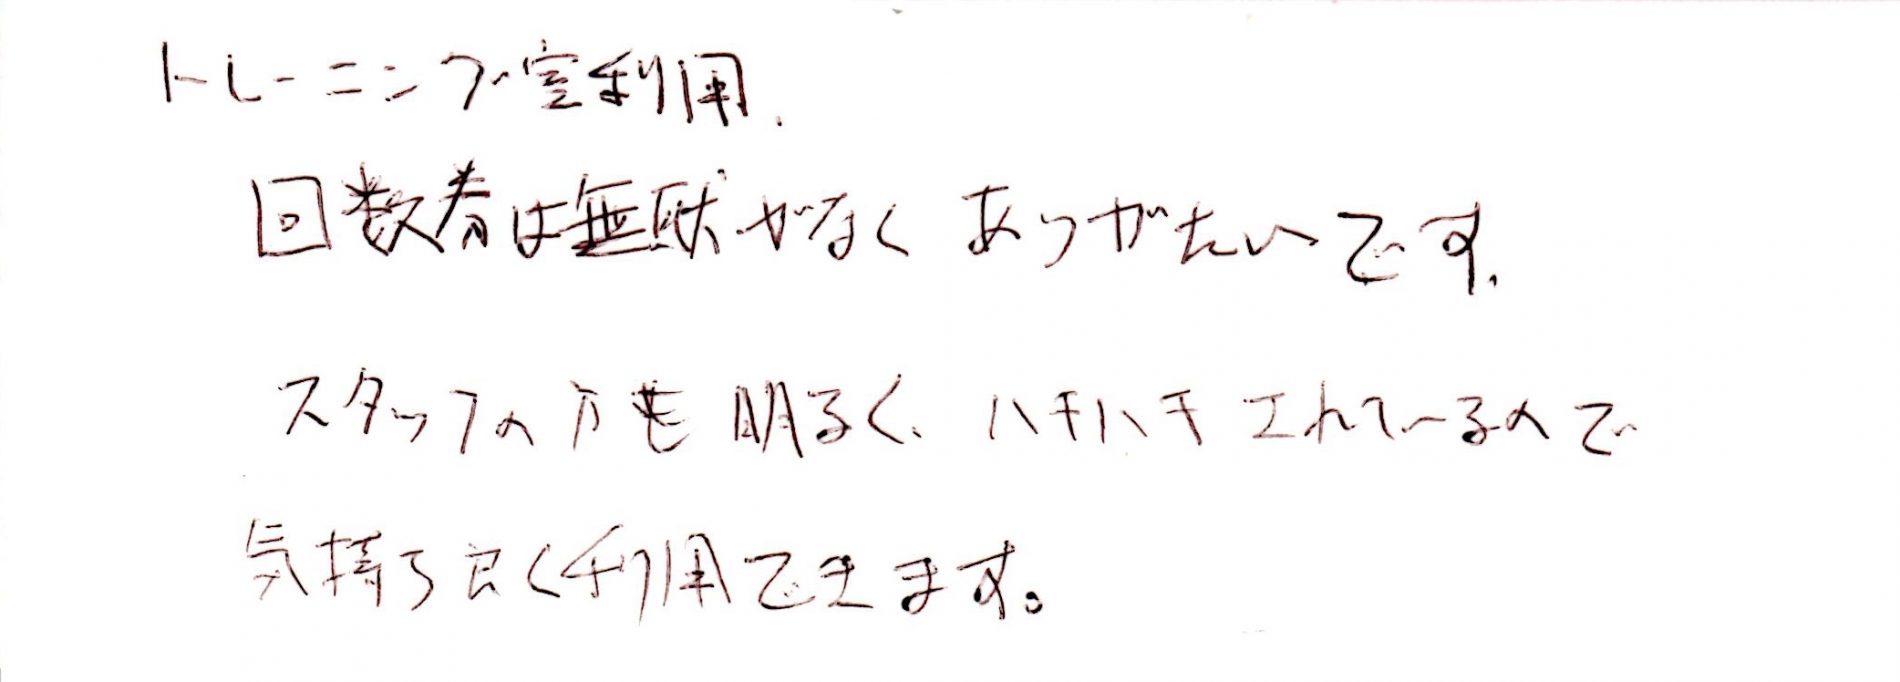 トレーニング室利用.
回数券は無駄がなく ありがたいです.
スタッフの方も明るく、ハキハキされているので
気持ち良く利用できます。